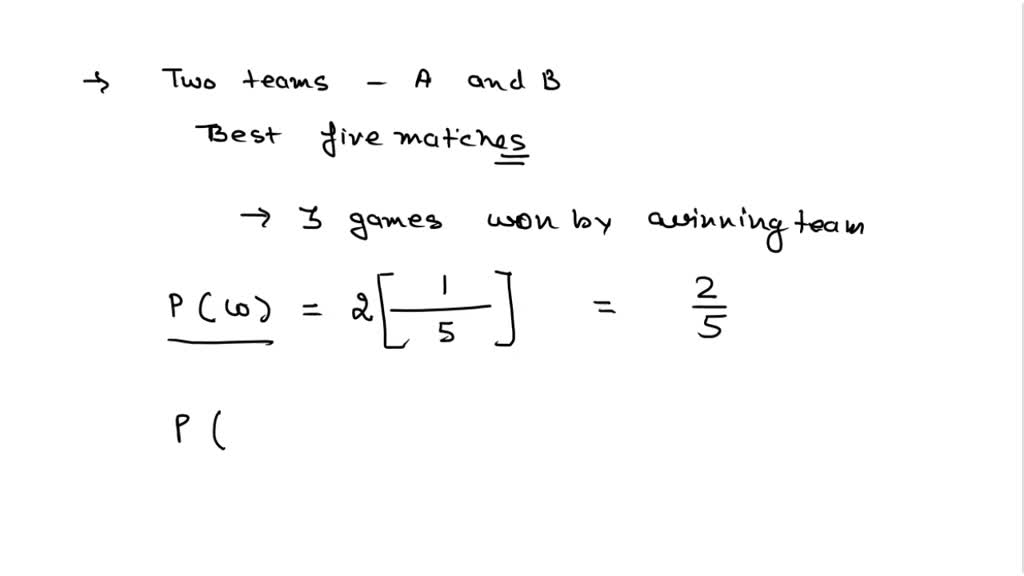 → Two teams - A and B
Best five matches
→ 3 games won by awinning team
P(ω) = 2[1/5] = 2/5
P (